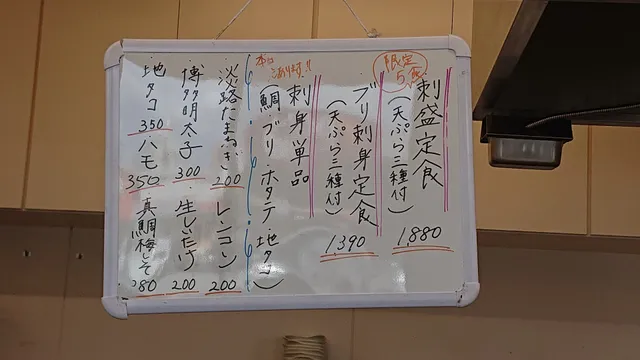 限定
5食
刺盛定食
(天ぷら三種付)
1,880
ブリ刺身定食
(天ぷら三種付)
1,390
あります!!
刺身単品
(鯛・ブリ・ホタテ・地タコ)
・淡路たまねぎ
200
・レンコン
200
・博多明太子
300
・生しいたけ
200
・地タコ
350
・ハモ
350
・真鯛梅しそ
280